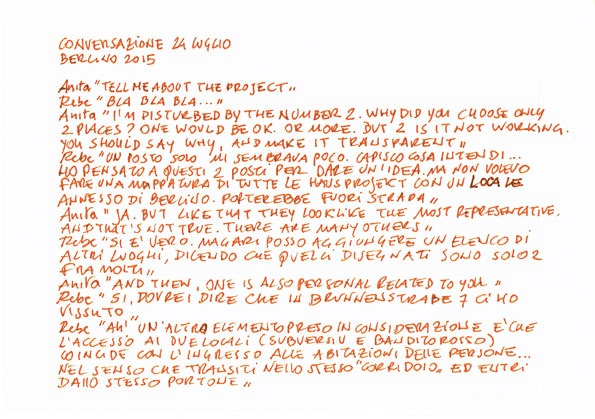 CONVERSAZIONE 24 LUGLIO
BERLINO 2015
Anita "TELL ME ABOUT THE PROJECT"
Rebe "BLA BLA BLA..."
Anita "I'M DISTURBED BY THE NUMBER 2. WHY DID YOU CHOOSE ONLY
2 PLACES? ONE WOULD BE OK. OR MORE. BUT 2 IS IT NOT WORKING.
YOU SHOULD SAY WHY, AND MAKE IT TRANSPARENT"
Rebe "UN POSTO SOLO MI SEMBRAVA POCO. CAPISCO COSA INTENDI...
HO PENSATO A QUESTI 2 POSTI PER DARE UN'IDEA. MA NON VOLEVO
FARE UNA MAPPATURA DI TUTTE LE HAUSPROJECT CON UN LOCALE
ANNESSO DI BERLINO. PORTEREBBE FUORI STRADA"
Anita "JA. BUT LIKE THAT THEY LOOK LIKE THE MOST REPRESENTATIVE.
AND THAT'S NOT TRUE. THERE ARE MANY OTHERS"
Rebe "SI È VERO. MAGARI POSSO AGGIUNGERE UN ELENCO DI
ALTRI LUOGHI, DICENDO CHE QUELLI DISEGNATI SONO SOLO 2
FRA MOLTI"
Anita "AND THEN, ONE IS ALSO PERSONAL RELATED TO YOU"
Rebe "SI, DOVREI DIRE CHE IN BRUNNENSTRABE 7 CI HO
VISSUTO"
Rebe "AH! UN'ALTRO ELEMENTO PRESO IN CONSIDERAZIONE È CHE
L'ACCESSO AI DUE LOCALI (SUBVERSIV E BANDITO ROSSO)
COINCIDE CON L'INGRESSO ALLE ABITAZIONI DELLE PERSONE...
NEL SENSO CHE TRANSITI NELLO STESSO "CORRIDOIO" ED ENTRI
DALLO STESSO PORTONE"